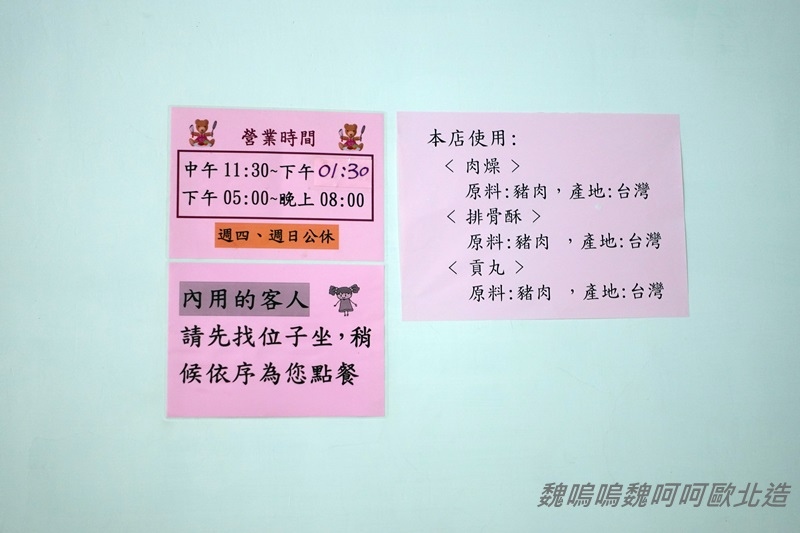 營業時間
中午 11:30~下午 01:30
下午 05:00~晚上 08:00
週四、週日公休
內用的客人
請先找位子坐，稍
候依序為您點餐
本店使用:
< 肉燥 >
原料:豬肉，產地:台灣
< 排骨酥 >
原料:豬肉 ，產地:台灣
< 貢丸 >
原料:豬肉 ，產地:台灣
魏嗚嗚魏呵呵歐北造